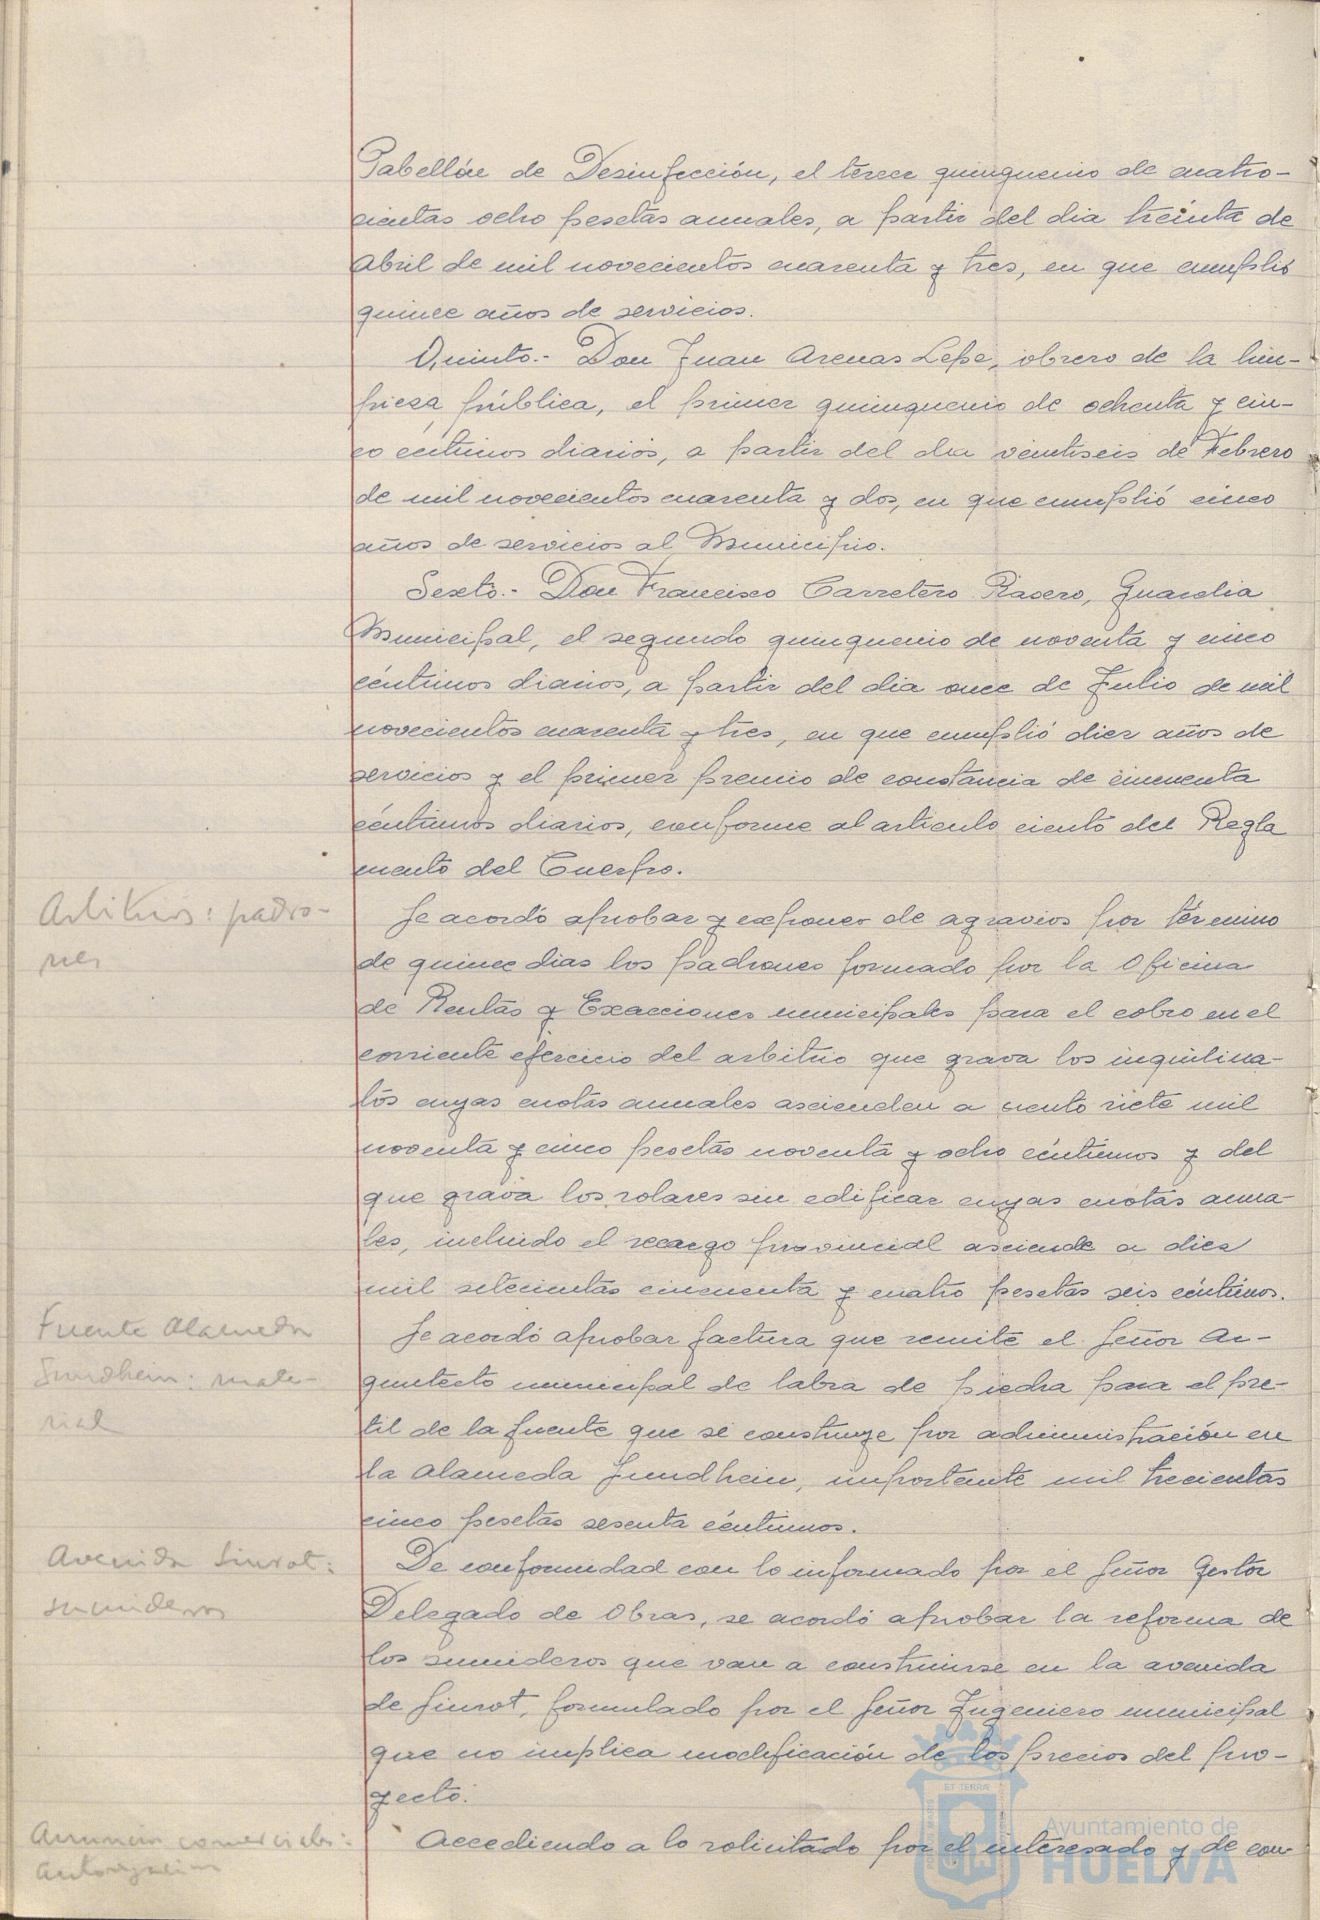 Pabellón de Desinfección, el tercer quinquenio de cuatro-
cientas ocho pesetas anuales, a partir del dia treinta de
Abril de mil novecientos cuarenta y tres, en que cumplió
quince años de servicios.
Quinto.- Don Juan Arenas Lepe, obrero de la lim-
pieza pública, el primer quinquenio de ochenta y cin-
co céntimos diarios, a partir del dia veintiseis de Febrero
de mil novecientos cuarenta y dos, en que cumplió cinco
años de servicios al Municipio.
Sexto.- Don Francisco Carretero Rasero, Guardia
Municipal, el segundo quinquenio de noventa y cinco
céntimos diarios, a partir del dia once de Julio de mil
novecientos cuarenta y tres, en que cumplió diez años de
servicios y el primer premio de constancia de cincuenta
céntimos diarios, conforme al articulo ciento del Regla
mento del Cuerpo.
Arbitrios: padro-
nes
Se acordó aprobar y exponer de agravios por término
de quince dias los padrones formado por la Oficina
de Rentas y Exacciones municipales para el cobro en el
corriente ejercicio del arbitrio que grava los inquilina-
tos cuyas cuotas anuales ascienden a ciento siete mil
noventa y cinco pesetas noventa y ocho céntimos y del
que grava los solares sin edificar cuyas cuotas anua-
les, incluido el recargo provincial asciende a diez
mil setecientas cincuenta y cuatro pesetas seis céntimos.
Fuente Alameda
Sundhein: mate-
rial
Se acordó aprobar factura que remite el Señor Ar-
quitecto municipal de labra de piedra para el pre-
til de la fuente que se construye por administración en
la Alameda Sundhein, importante mil trecientas
cinco pesetas sesenta céntimos.
Avenida Siurot:
sumideros
De conformidad con lo informado por el Señor Gestor
Delegado de Obras, se acordó aprobar la reforma de
los sumideros que van a construirse en la avenida
de Siurot, formulado por el Señor Ingeniero municipal
que no implica modificación de los precios del pro-
yecto.
Anuncios comerciales:
Autorización
Accediendo a lo solicitado por el interesado y de con-
ET TERRÆ
Ayuntamiento de
HUELVA